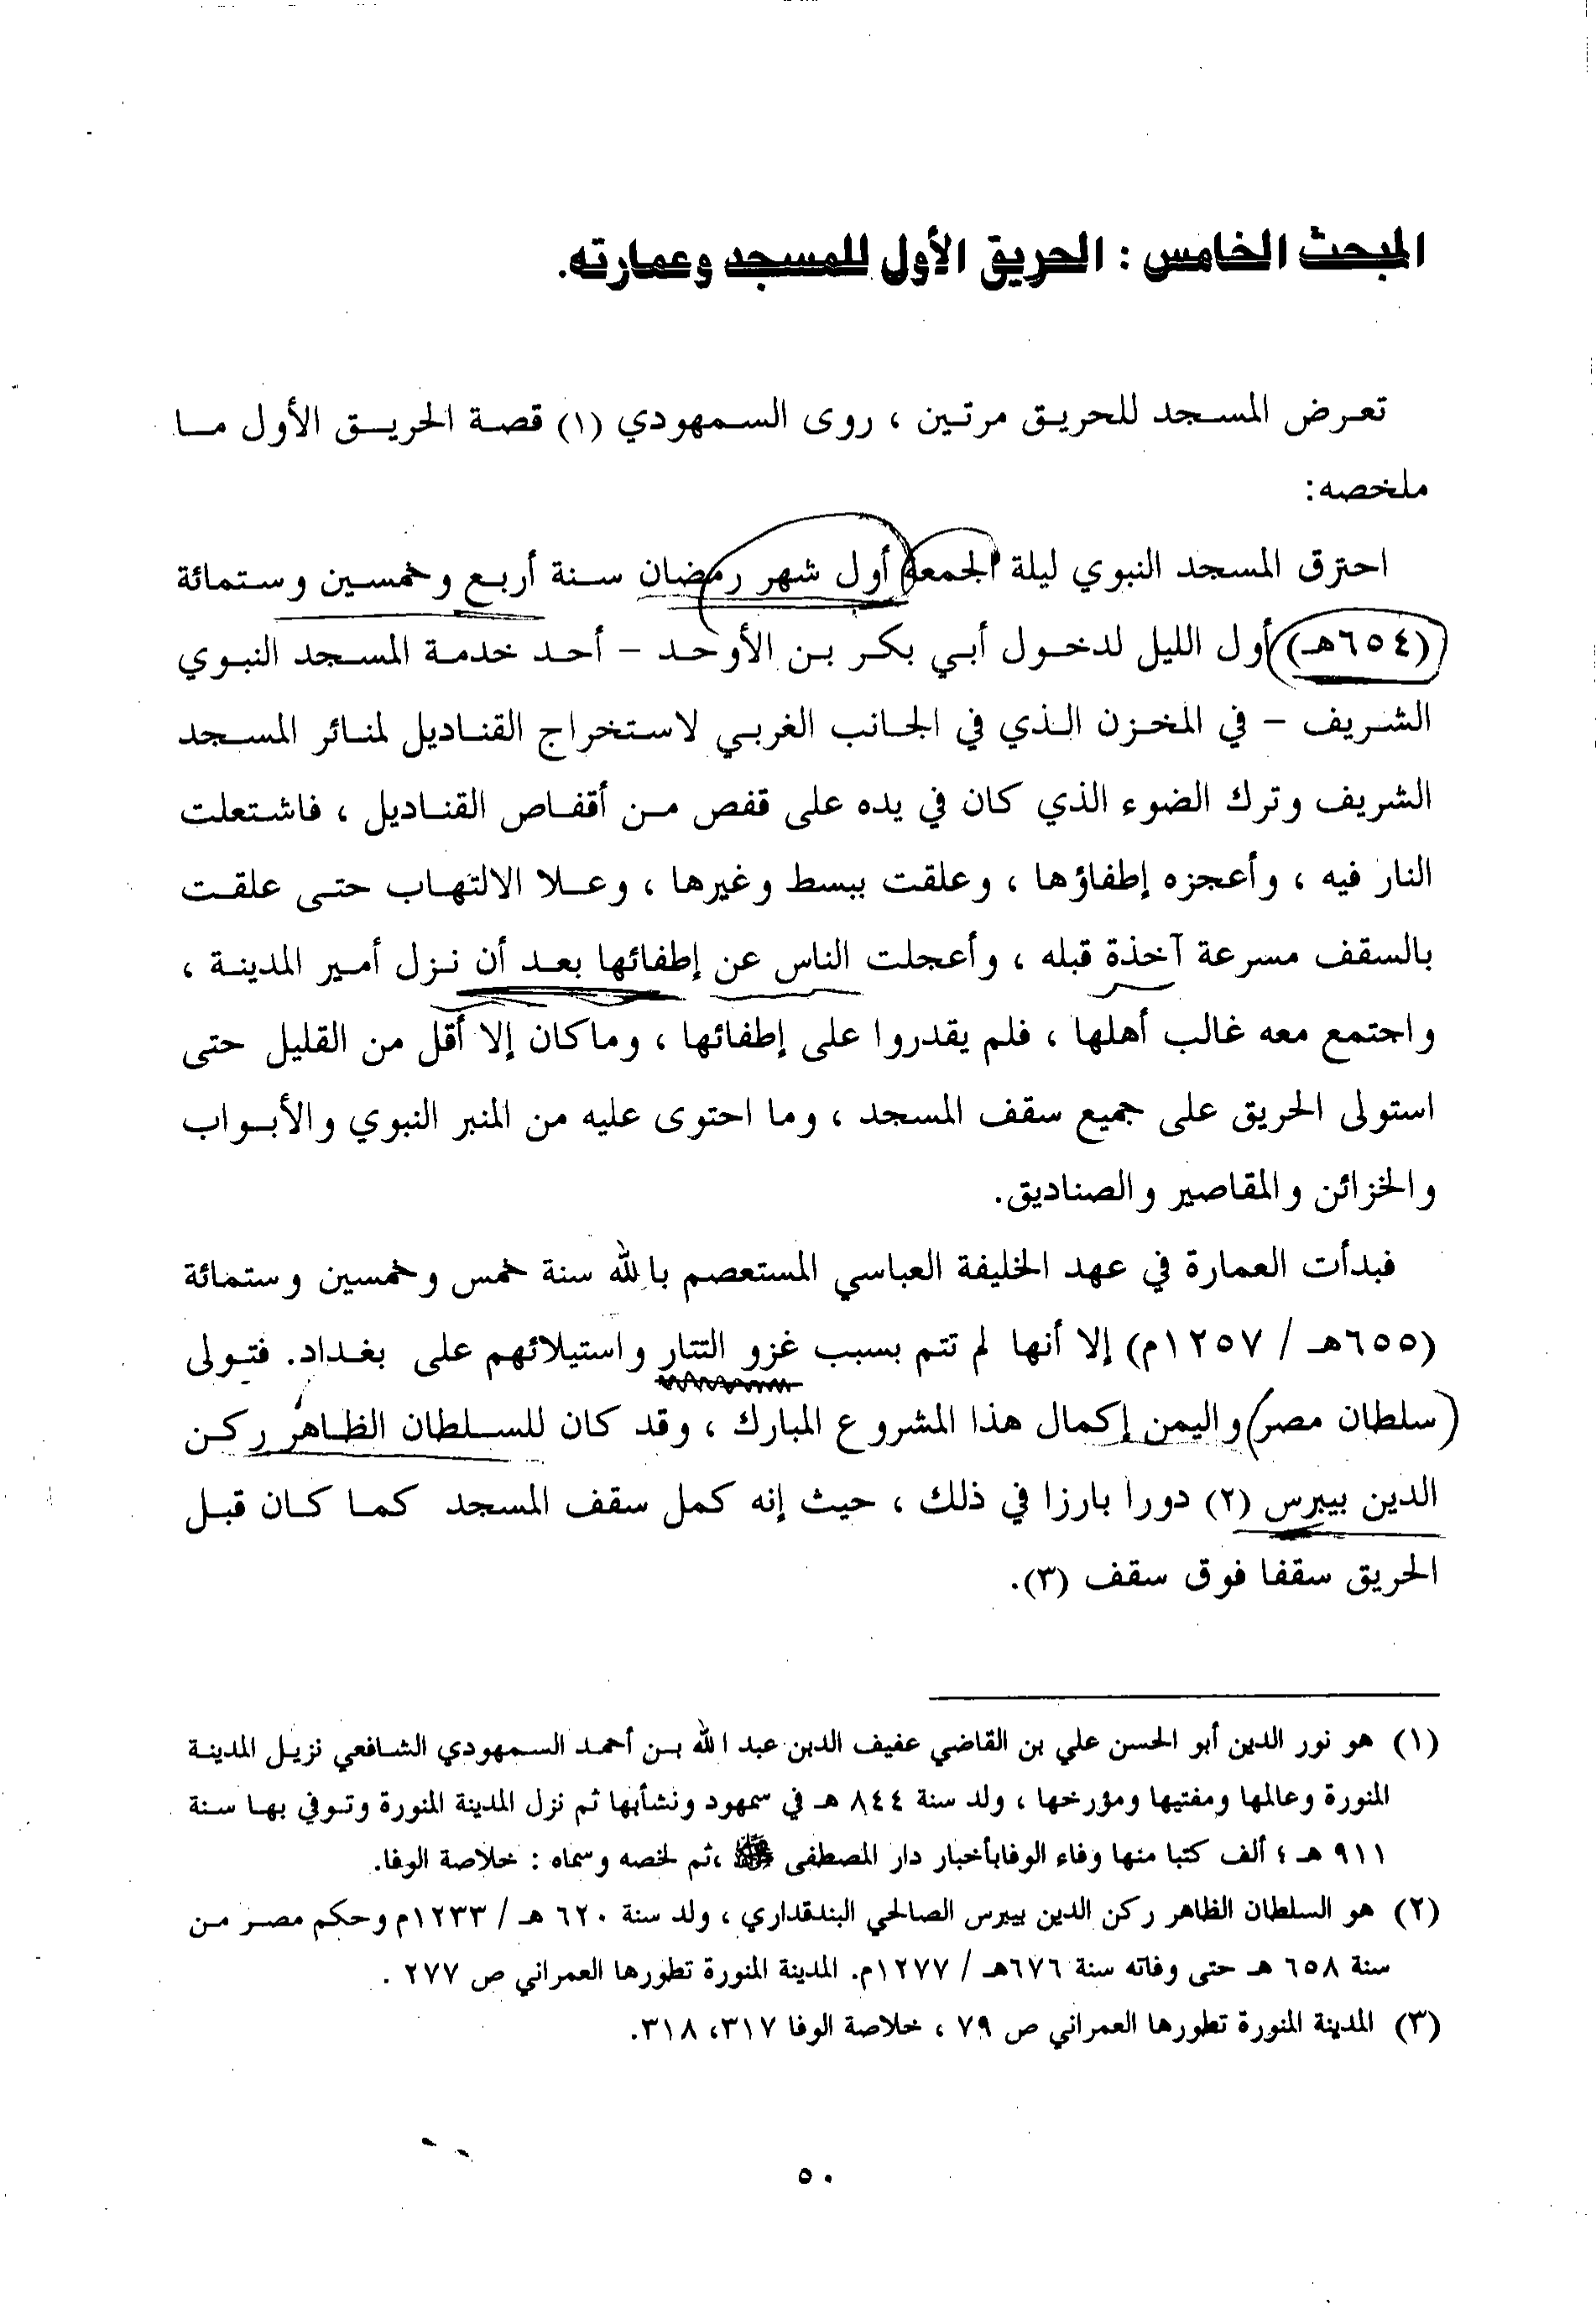 المبحث الخامس : الحريق الأول للمسجد وعمارته.
تعرض المسجد للحريق مرتين ، روى السمهودي (١) قصة الحريق الأول ما
ملخصه:
احترق المسجد النبوي ليلة الجمعة أول شهر رمضان سنة أربع وخمسين وستمائة
(٦٥٤هـ) أول الليل لدخول أبي بكر بن الأوحد – أحد خدمة المسجد النبوي
الشريف – في المخزن الذي في الجانب الغربي لاستخراج القناديل لمنائر المسجد
الشريف وترك الضوء الذي كان في يده على قفص من أقفاص القناديل ، فاشتعلت
النار فيه ، وأعجزه إطفاؤها ، وعلقت ببسط وغيرها ، وعلا الالتهاب حتى علقت
بالسقف مسرعة آخذة قبله ، وأعجلت الناس عن إطفائها بعد أن نزل أمير المدينة ،
واجتمع معه غالب أهلها ، فلم يقدروا على إطفائها ، وماكان إلا أقل من القليل حتى
استولى الحريق على جميع سقف المسجد ، وما احتوى عليه من المنبر النبوي والأبواب
والخزائن والمقاصير والصناديق.
فبدأت العمارة في عهد الخليفة العباسي المستعصم بالله سنة خمس وخمسين وستمائة
(٦٥٥هـ / ١٢٥٧م) إلا أنها لم تتم بسبب غزو التتار واستيلائهم على بغداد. فتولى
سلطان مصر واليمن إكمال هذا المشروع المبارك ، وقد كان للسلطان الظاهر ركن
الدين بيبرس (٢) دورا بارزا في ذلك ، حيث إنه كمل سقف المسجد كما كان قبل
الحريق سقفا فوق سقف (٣).
(١) هو نور الدين أبو الحسن علي بن القاضي عفيف الدين عبد الله بن أحمد السمهودي الشافعي نزيل المدينة
المنورة وعالمها ومفتيها ومؤرخها ، ولد سنة ٨٤٤ هـ في سمهود ونشأبها ثم نزل المدينة المنورة وتوفي بها سنة
٩١١ هـ ؛ ألف كتبا منها وفاء الوفابأخبار دار المصطفى ﷺ ،ثم لخصه وسماه : خلاصة الوفا.
(٢) هو السلطان الظاهر ركن الدين بيبرس الصالحي البندقداري ، ولد سنة ٦٢٠ هـ / ١٢٣٣م وحكم مصر من
سنة ٦٥٨ هـ حتى وفاته سنة ٦٧٦هـ / ١٢٧٧م. المدينة المنورة تطورها العمراني ص ٢٧٧ .
(٣) المدينة المنورة تطورها العمراني ص ٧٩ ، خلاصة الوفا ٣١٧، ٣١٨.
٥٠